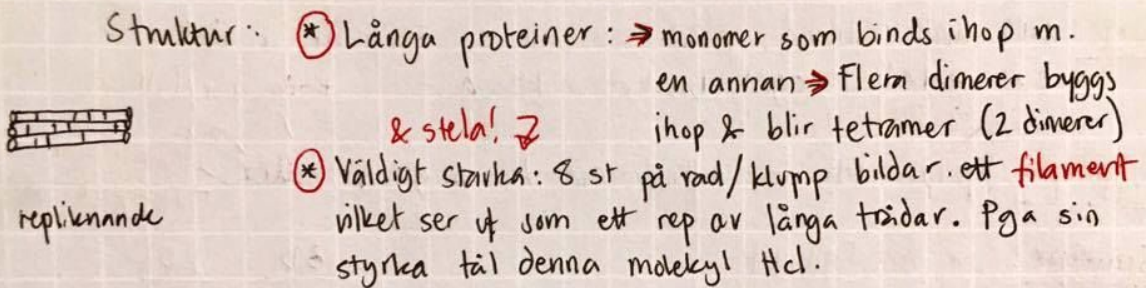 Struktur: * Långa proteiner: ⇒ monomer som binds ihop m.
en annan ⇒ Flera dimerer byggs
ihop & blir tetramer (2 dimerer)
& stela!
* Väldigt starka: 8 st på rad/klump bildar ett filament
vilket ser ut som ett rep av långa trådar. Pga sin
styrka tål denna molekyl Hcl.
repliknande